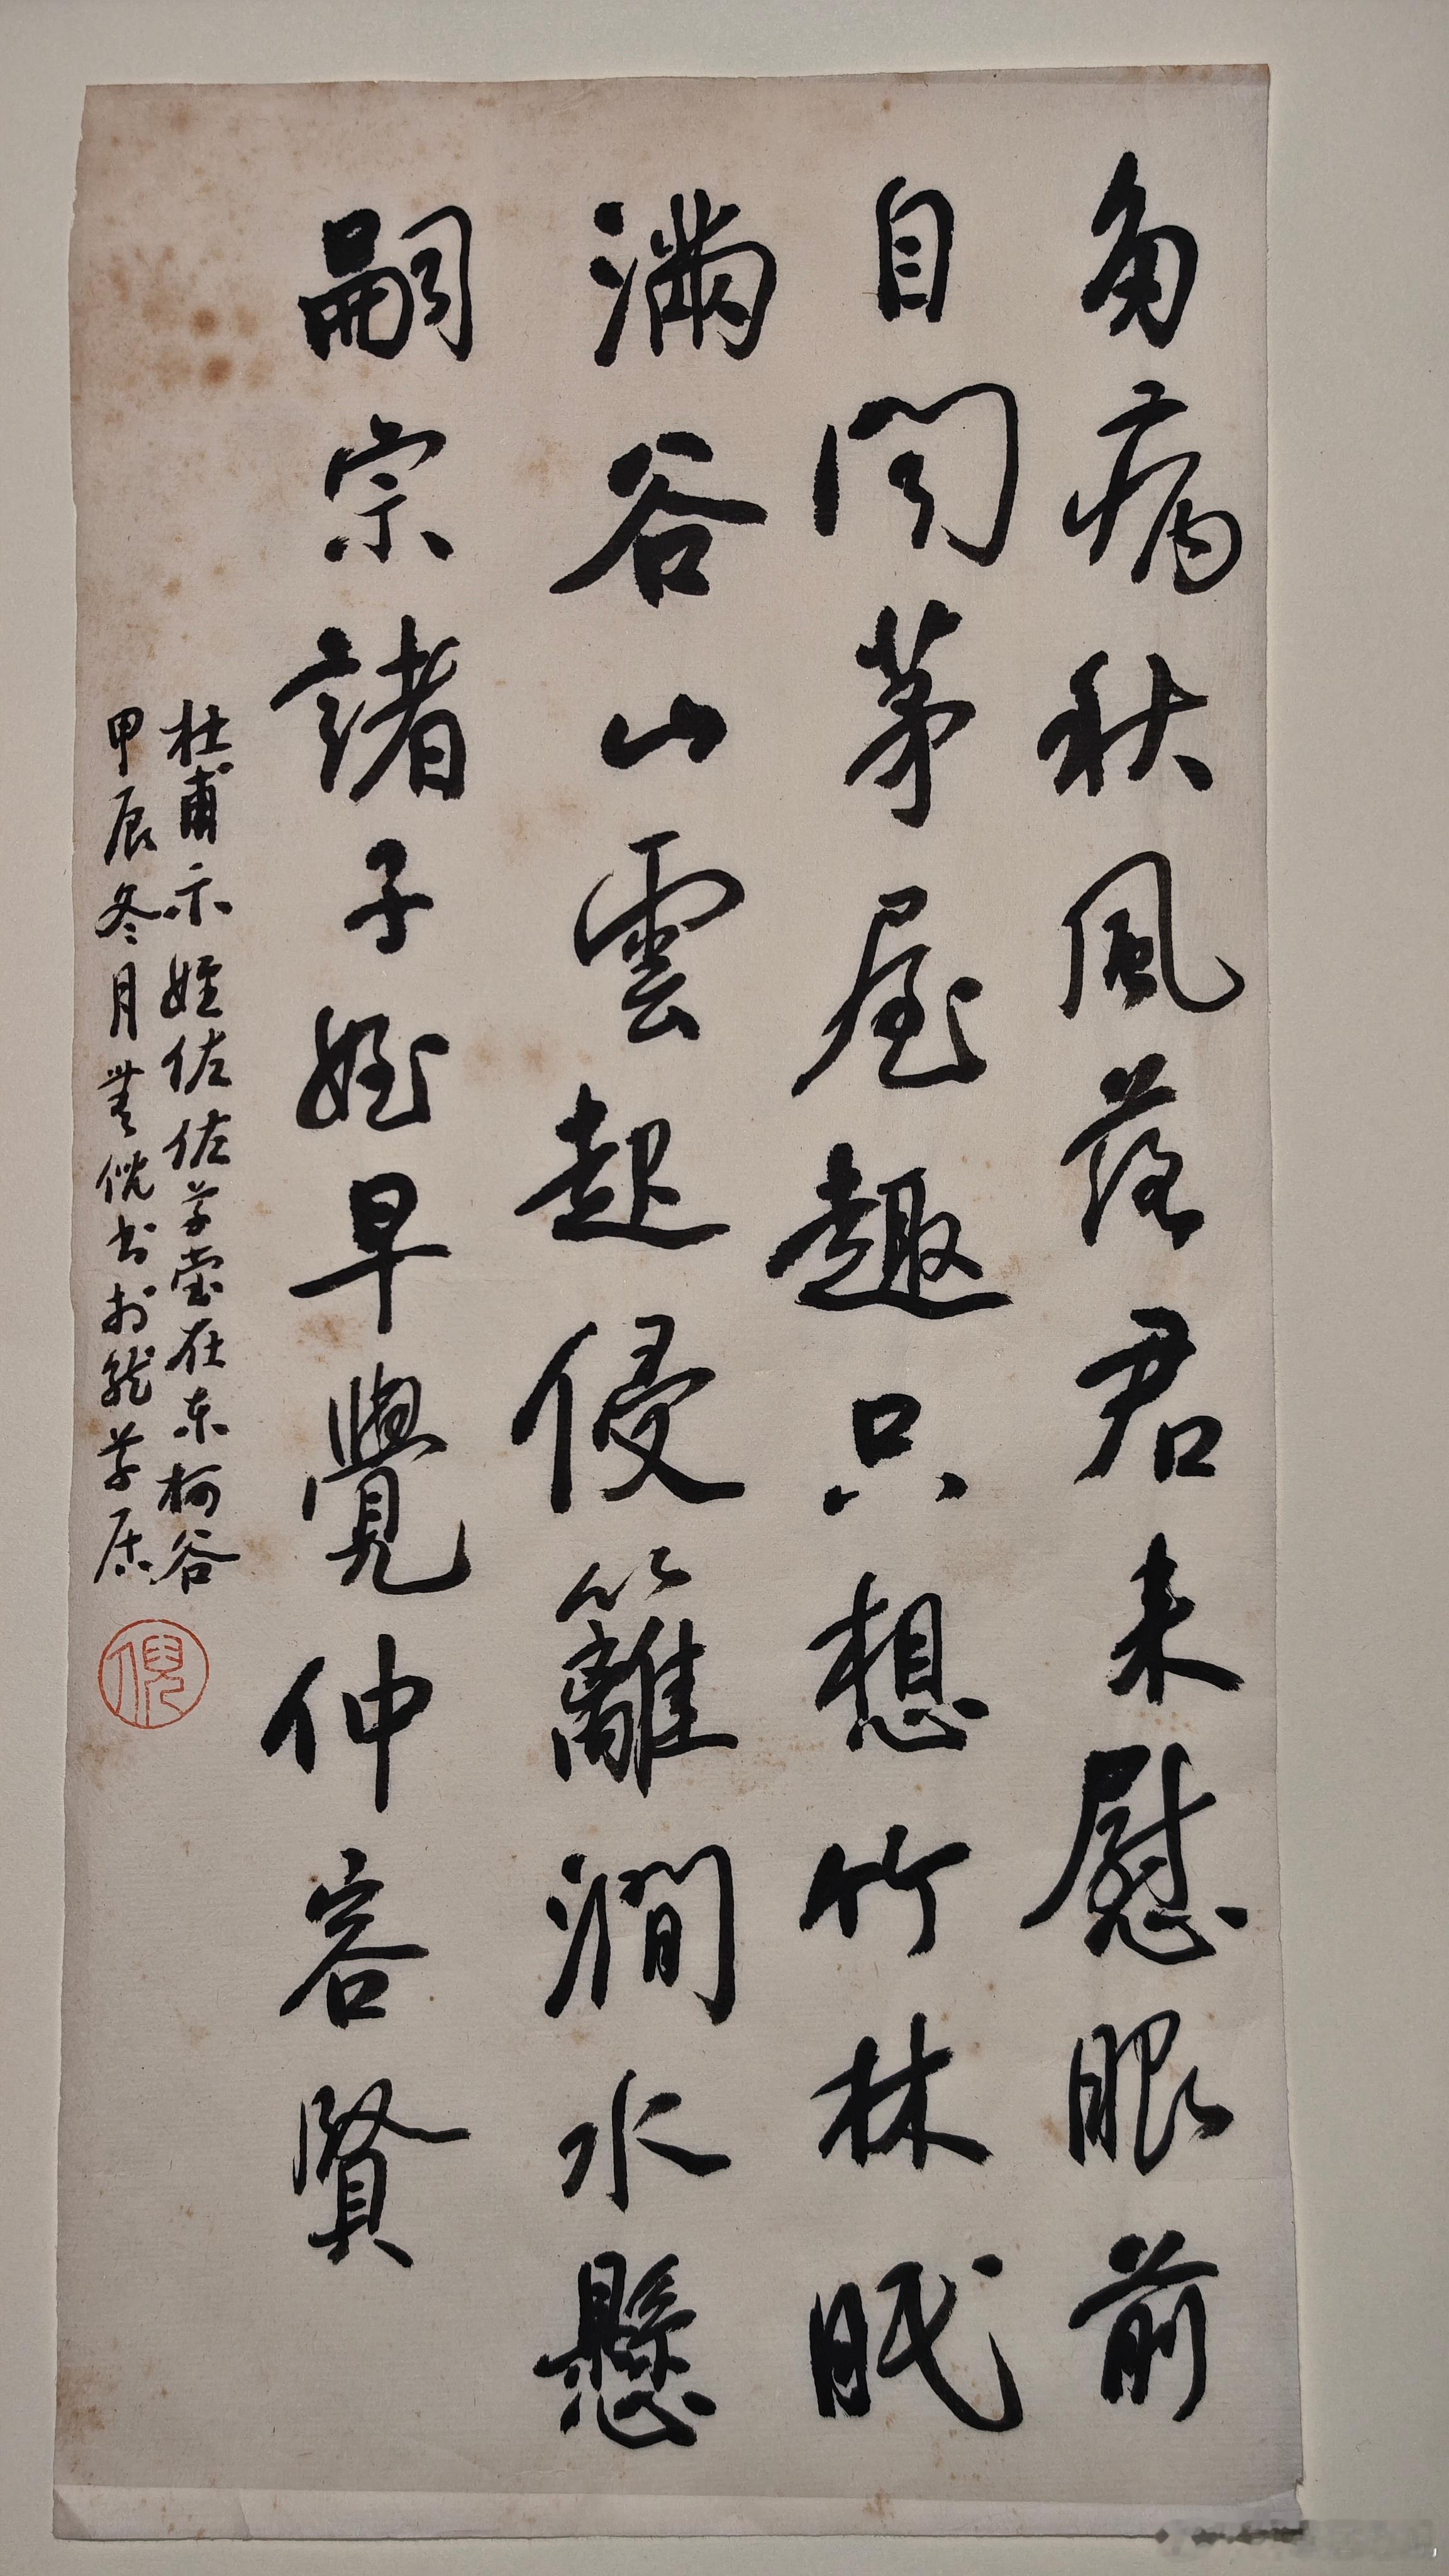 多病秋風落君来慰眼前
自聞茅屋趣只想竹林眠
滿谷山雲起侵籬澗水懸
嗣宗諸子姪早覺仲容賢
杜甫示姪佐佐草堂在东柯谷
甲辰冬月 倪书于 草居
倪